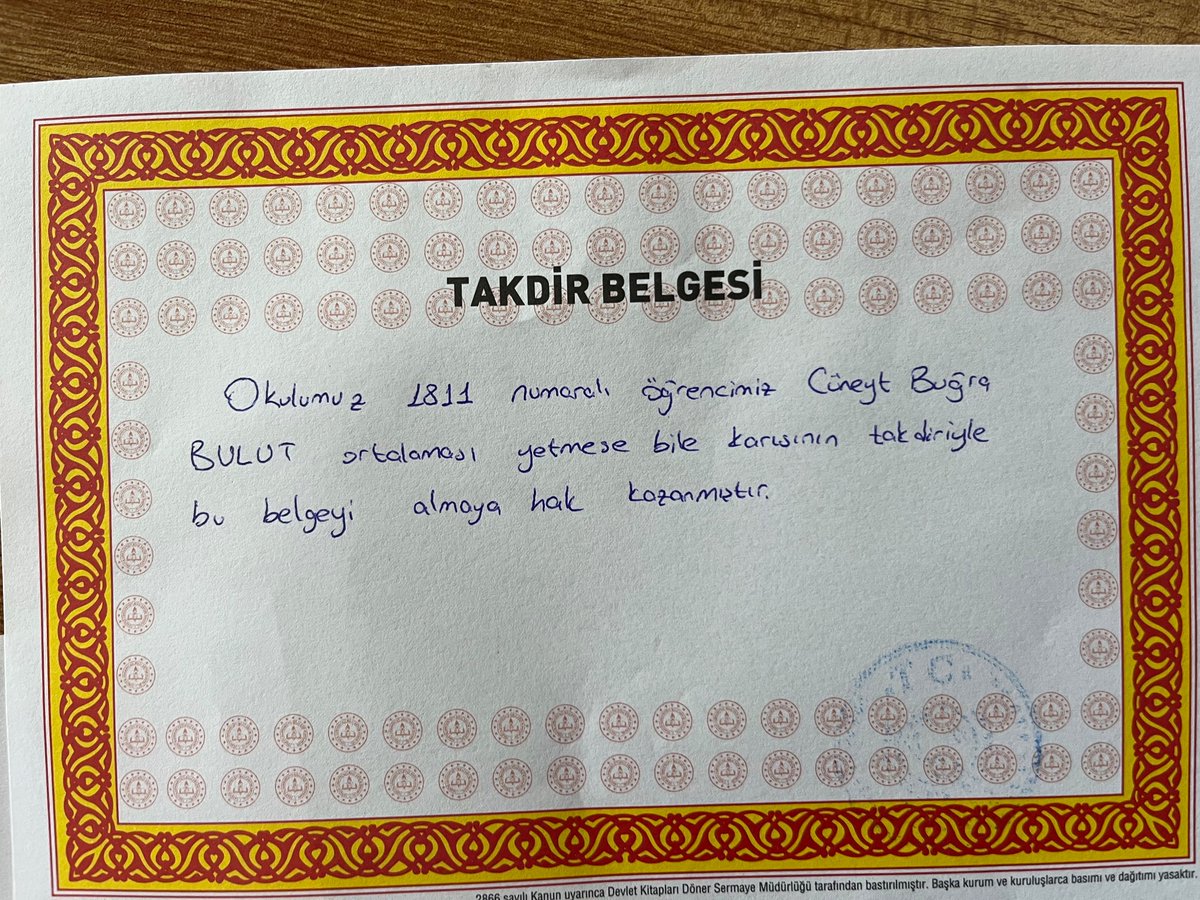 TAKDİR BELGESİ
Okulumuz 1811 numaralı öğrencimiz Cüneyt Buğra
BULUT ortalaması yetmese bile karısının takdiriyle
bu belgeyi almaya hak kazanmıştır.
T.C.
2866 sayılı Kanun uyarınca Devlet Kitapları Döner Sermaye Müdürlüğü tarafından bastırılmıştır. Başka kurum ve kuruluşlarca basımı ve dağıtımı yasaktır.